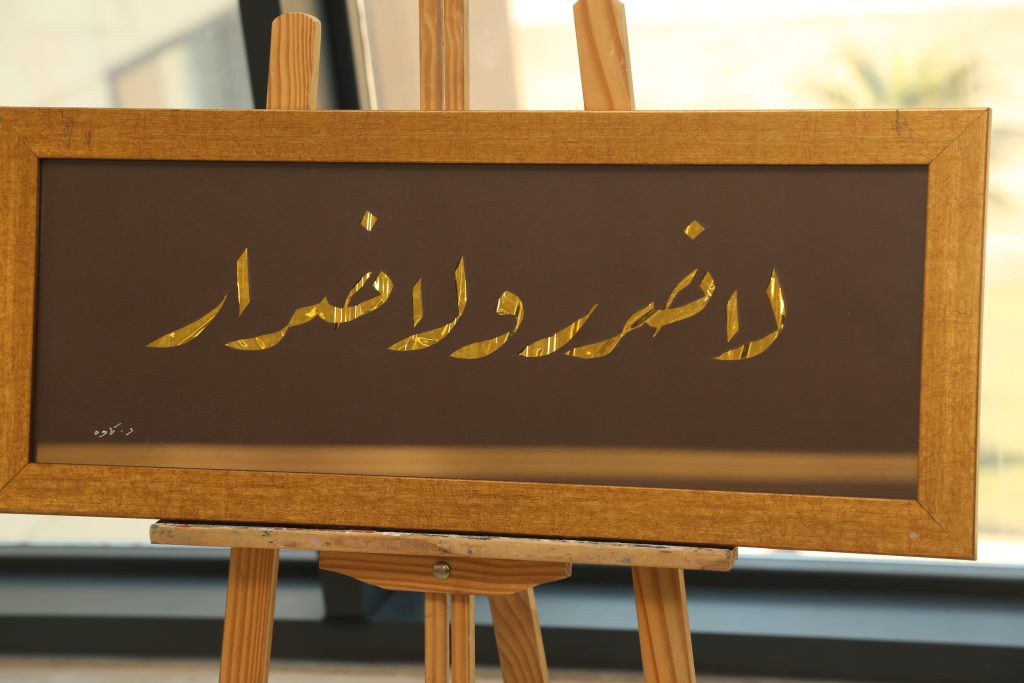 لا ضرر ولا ضرار
د. كاوه